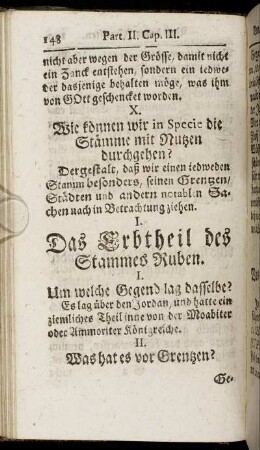 148 Part. II. Cap. III.
nicht aber wegen der Grösse, damit nicht
ein Zanck entstehen, sondern ein iedwe-
der dasjenige behalten möge, was ihm
von GOtt geschencket worden.
X.
Wie können wir in Specie die
Stämme mit Nutzen
durchgehen?
Dergestalt, daß wir einen iedweden
Stamm besonders, seinen Grentzen/
Städten und andern notablen Sa-
chen nach in Betrachtung ziehen.
I.
Das Erbtheil des
Stammes Ruben.
I.
Um welche Gegend lag dasselbe?
Es lag über den Jordan, und hatte ein
ziemliches Theil inne von der Moabiter
oder Ammoriter Königreiche.
II.
Was hat es vor Grentzen?
Ge-